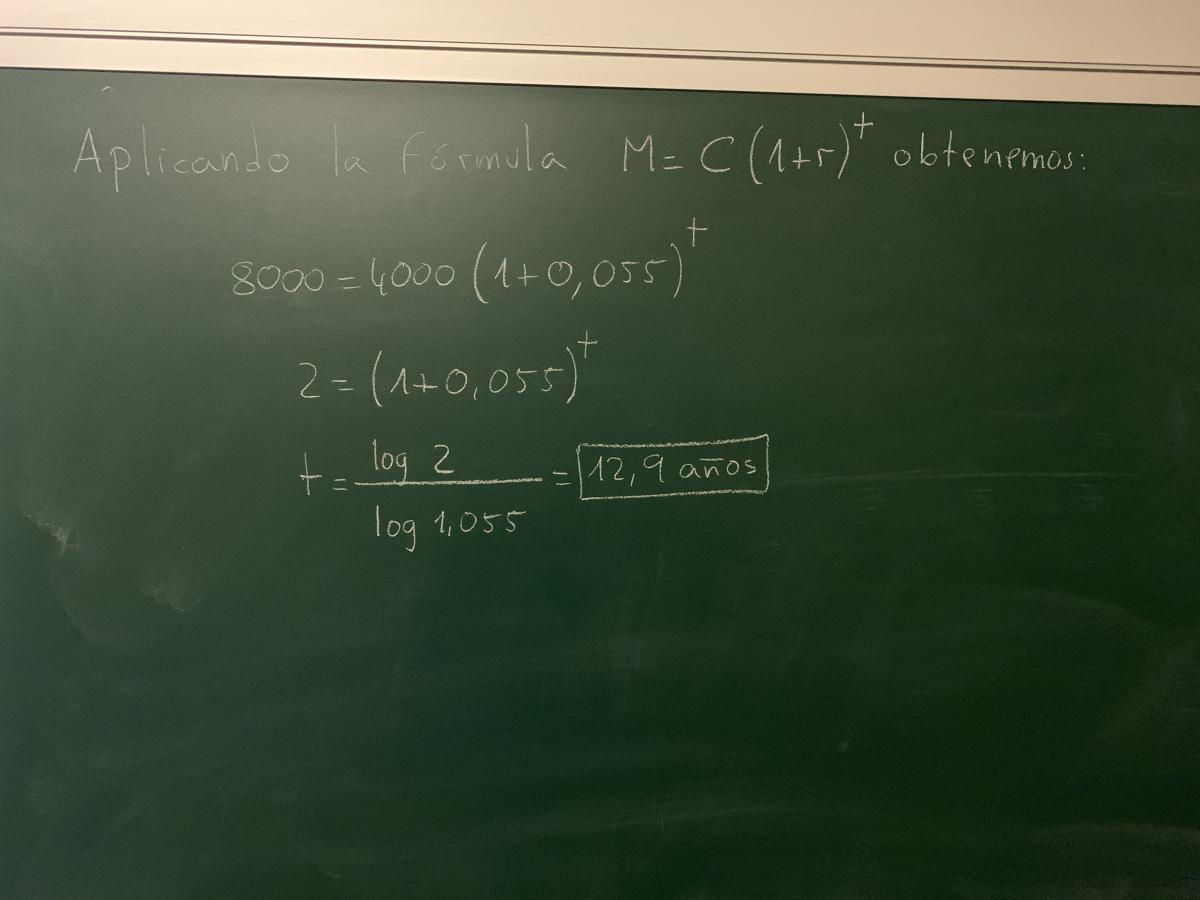 Aplicando la fórmula M = C(1+r)^t obtenemos:
8000 = 4000 (1+0,055)^t
2 = (1+0,055)^t
t = log 2 / log 1,055 = 12,9 años